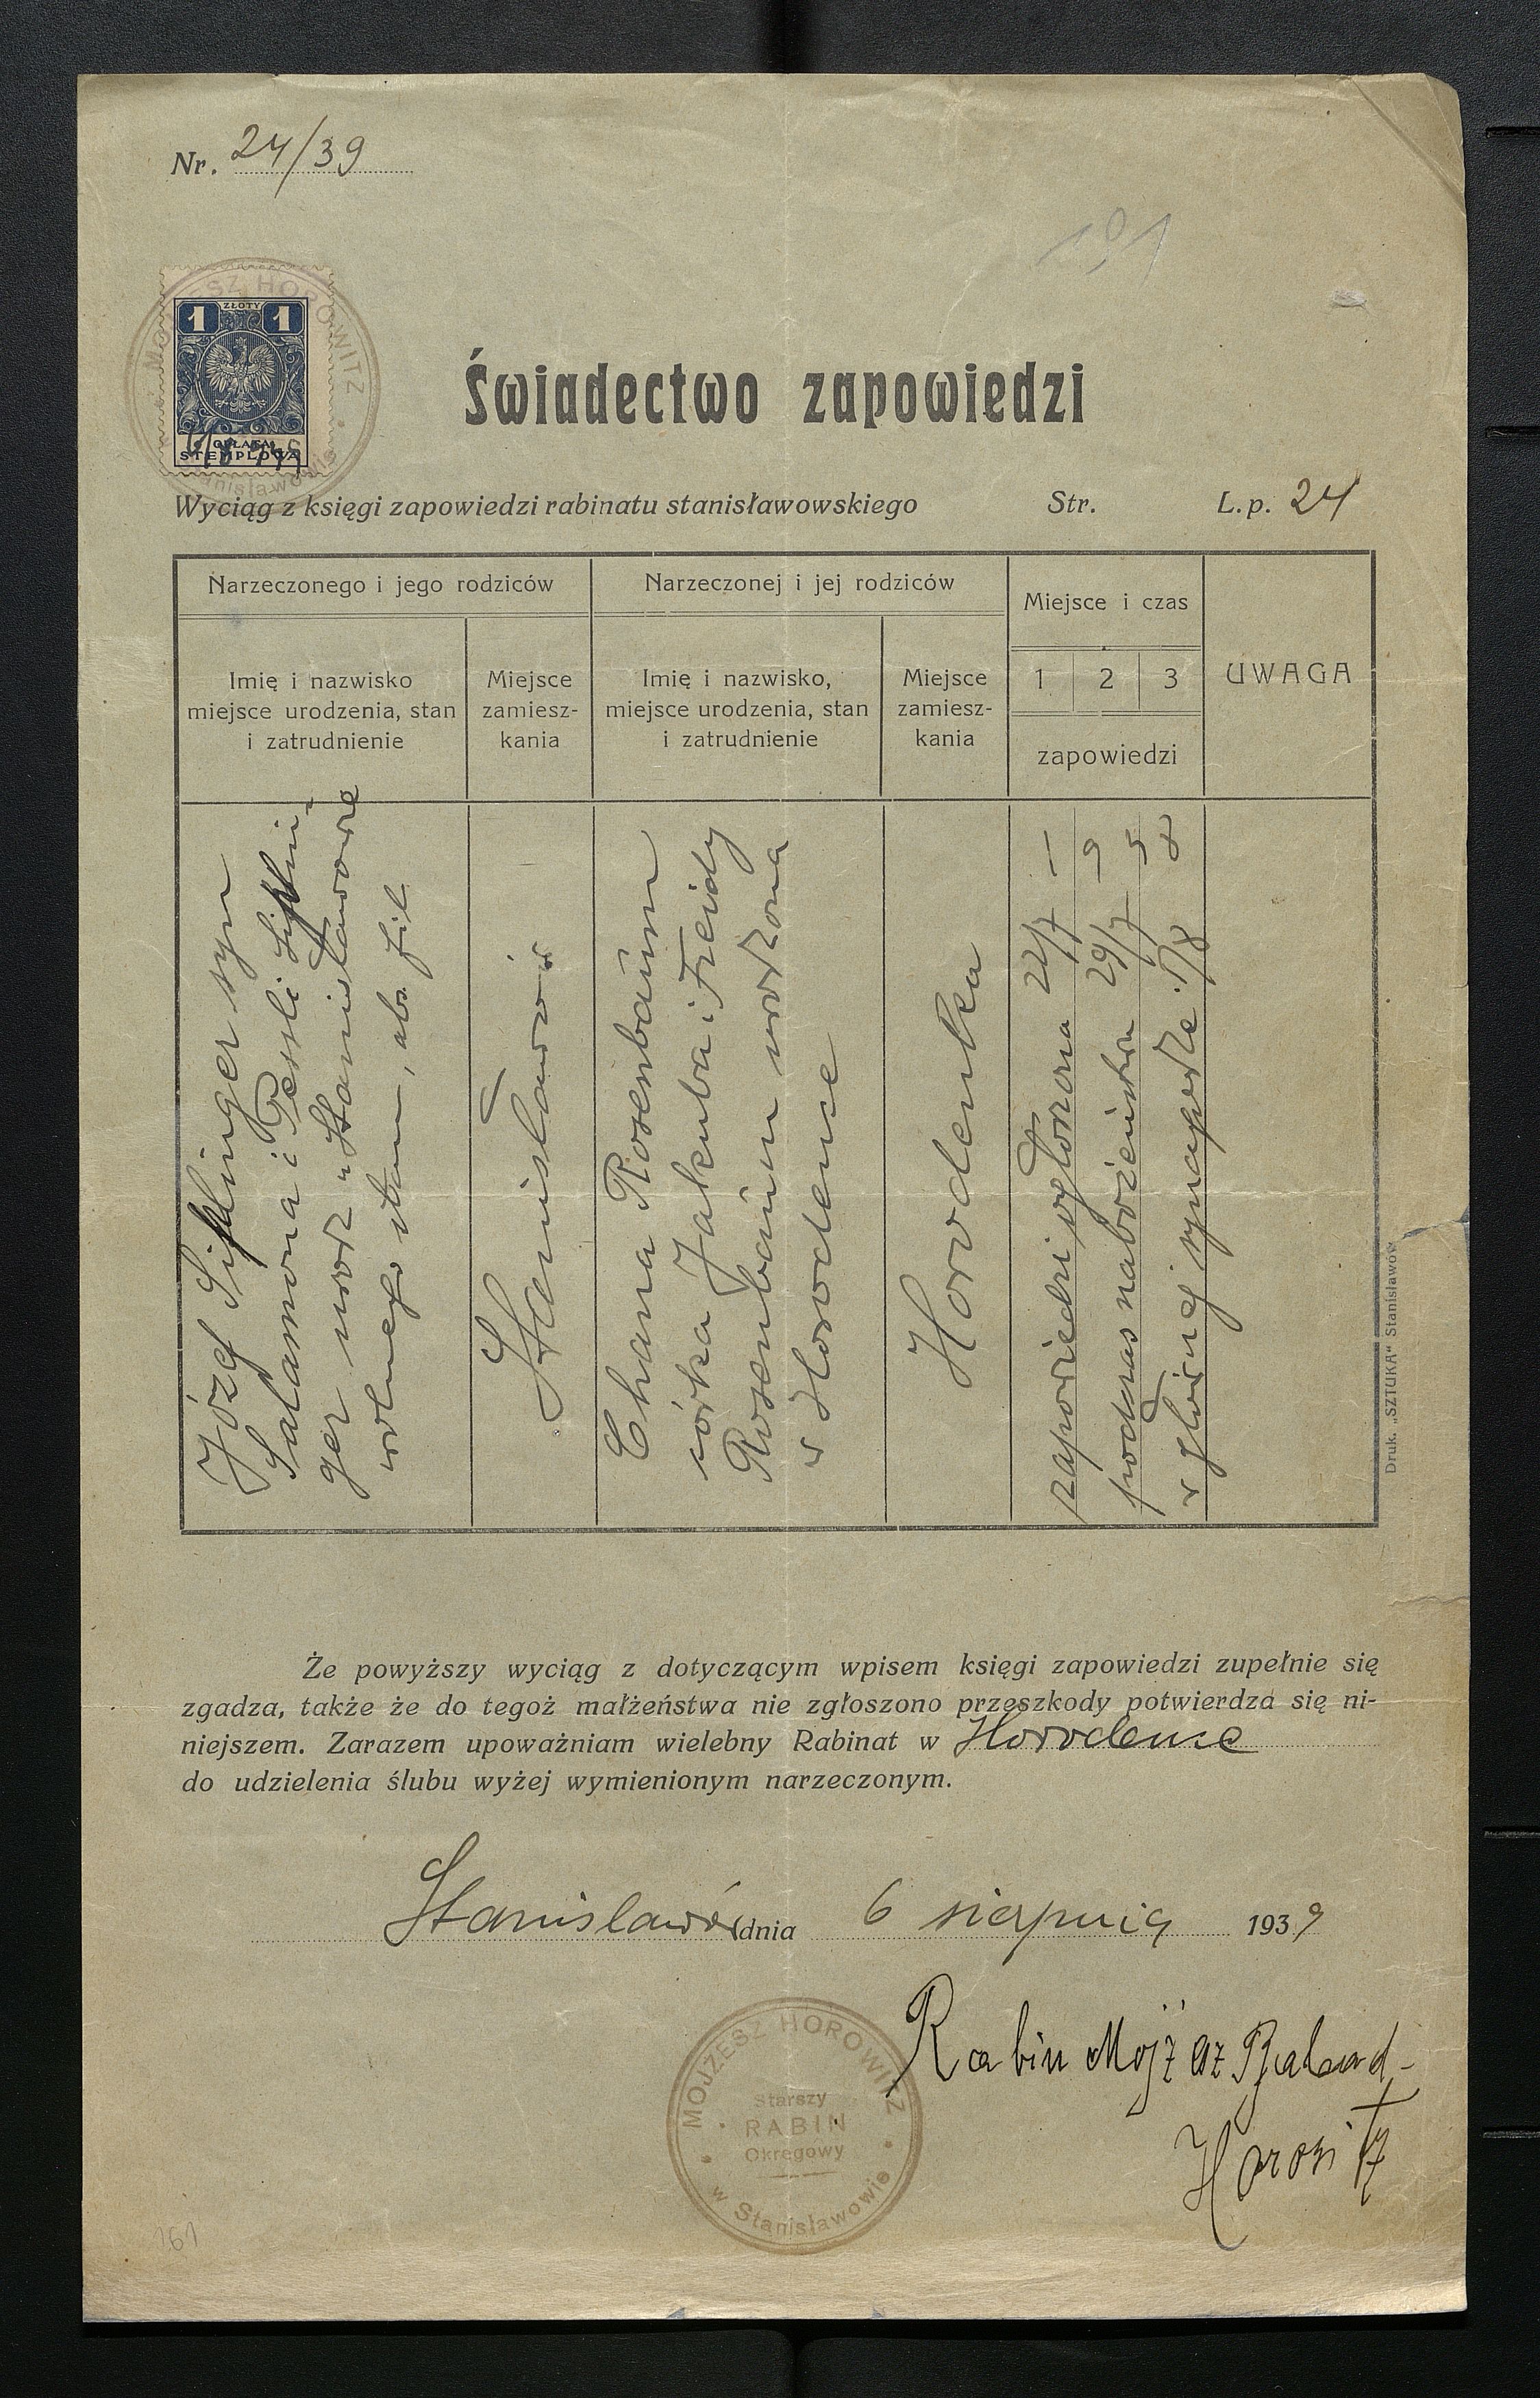 Nr. 24/39
191
MOJŻESZ HOROWITZ
1 ZŁOTY 1
OPŁATA
STEMPLOWA
Stanisławowie
Świadectwo zapowiedzi
Wyciąg z księgi zapowiedzi rabinatu stanisławowskiego Str. L. p. 24
Narzeczonego i jego rodziców
Imię i nazwisko
miejsce urodzenia, stan
i zatrudnienie
Miejsce
zamiesz-
kania
Narzeczonej i jej rodziców
Imię i nazwisko,
miejsce urodzenia, stan
i zatrudnienie
Miejsce
zamiesz-
kania
Miejsce i czas
1 2 3
zapowiedzi
UWAGA
Józef Siplinger syn
Salamona i Pessli Siplin-
ger urodz w Stanisławowie
wolnego stanu, abs. fil.
Stanisławów
Chana Rosenbaum
córka Jakuba i Freidy
Rosenbaum urodzona
w Horodence
Horodenka
zapowiedzi ogłoszona 22/7 —
podczas nabożeństwa 29/7 —
w głównej synagodze 5/8
939
Druk. „SZTUKA“ Stanisławów
Że powyższy wyciąg z dotyczącym wpisem księgi zapowiedzi zupełnie się
zgadza, także że do tegoż małżeństwa nie zgłoszono przeszkody potwierdza się ni-
niejszem. Zarazem upoważniam wielebny Rabinat w Horodence
do udzielenia ślubu wyżej wymienionym narzeczonym.
Stanisławów dnia 6 sierpnia 1939
Rabin Mojżesz
Horowitz
MOJŻESZ HOROWITZ
Starszy
RABIN
Okręgowy
w Stanisławowie
161